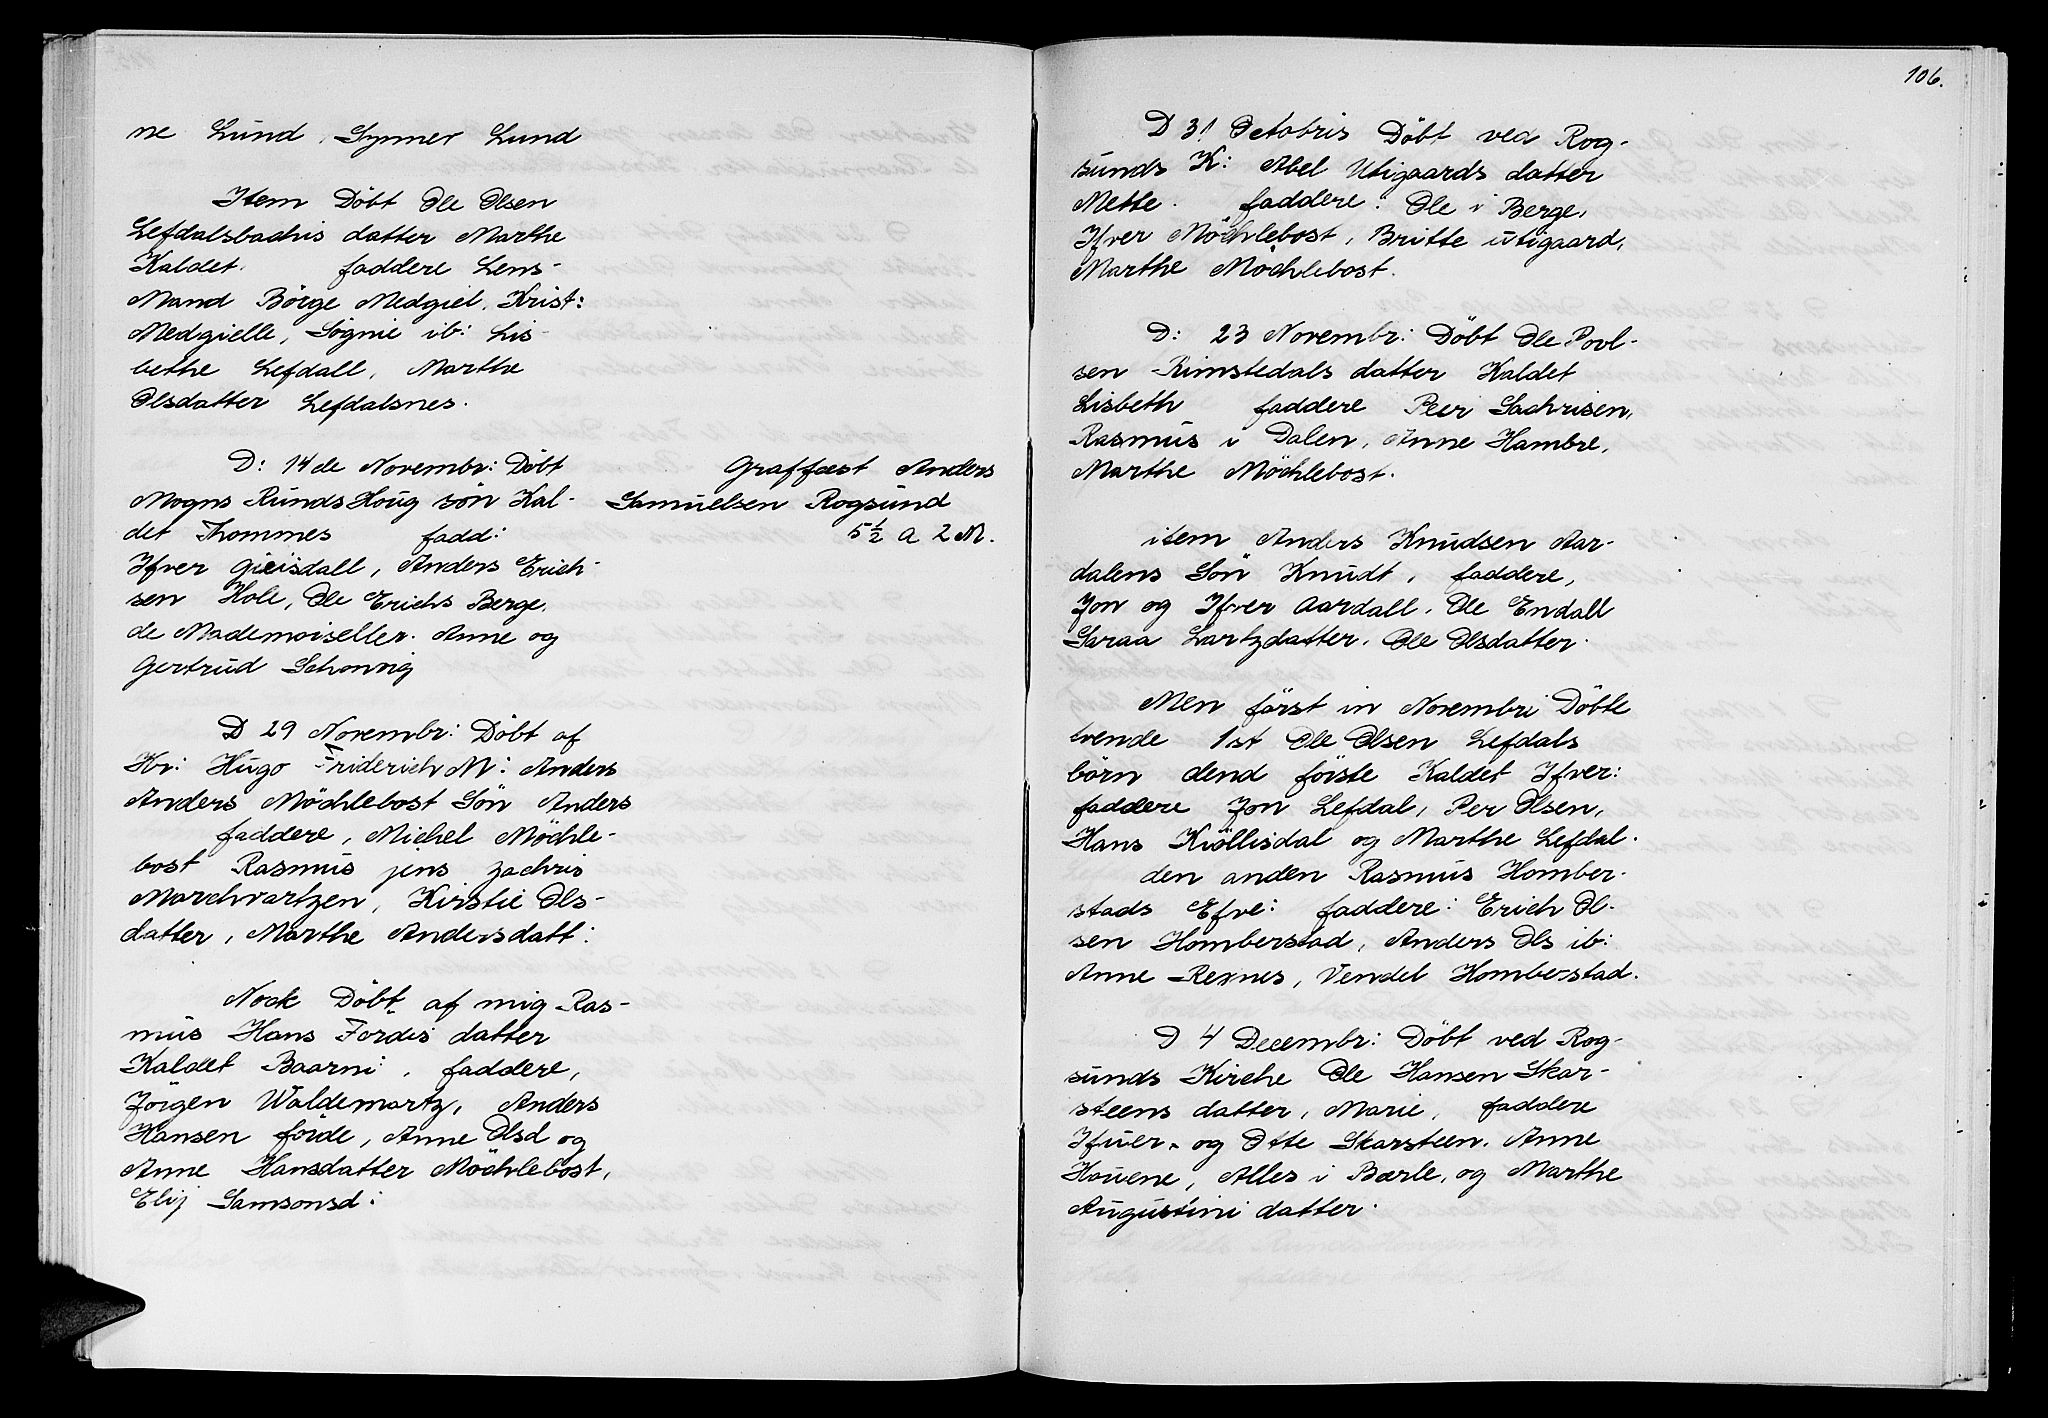 ne Lund, Synner Lund
Item Döbt Ole Olsen
Lefdalsbachis datter Marthe
Kaldet. faddere Lens-
Mand Börge Medgiel, Krist:
Medgielle, Sögnie ib: Lis-
bethe Lefdall, Marthe
Olsdatter Lefdalsnes.
D: 14de Novembr: Döbt
Mogns Runds Houg sön Kal-
det Thommes fadd:
Ifver gieisdall, Anders Erich-
sen Hole, Ole Erichs Berge,
de Mademoiseller. Anne og
Gertrud Schonnig
Graffæst Anders
Samuelsen Rogsund
5½ a 2 M.
D 29 Novembr: Döbt af
Hr: Hugo Friderich M: Anders
Anders Möchlebost Sön Anders
faddere, Michel Möchle-
bost Rasmus jens zachris
Marchvartzen, Kirstie Ols-
datter, Marthe Andersdatt:
Nock Döbt af mig Ras-
mus Hans Fördis datter
Kaldet Baarni, faddere,
Jörgen Woldemartz, Anders
Hansen förde, Anne Olsd og
Anne Hansdatter Möchlebost,
Elij Samsonsd:
106.
D 31 Octobris Döbt ved Rog-
sunds K: Abel Utigaards datter
Mette. faddere: Ole i Berge,
Ifver Möchlebost, Britte utigaard,
Marthe Möchlebost.
D: 23 Novembr: Döbt Ole Povl-
sen Rimstedals datter Kaldet
Lisbeth faddere Peer Sachrisen,
Rasmus i Dalen, Anne Hambre,
Marthe Möchlebost.
item Anders Knudsen Aar-
dalens Sön Knudt, faddere,
Jon og Ifver Aardall, Ole Endall
Saraa Lartzdatter, Ole Olsdatter.
Men först in Novembri Döbte
tvende 1st Ole Olsen Lefdals
börn dend förste Kaldet Ifver:
faddere Jon Lefdal, Per Olsen,
Hans Kiöllisdal og Marthe Lefdal.
den anden Rasmus Homber-
stads Efve: faddere: Erich Ol-
sen Homberstad, Anders Ols ib:
Anne Rexnes, Vendel Homberstad.
D 4 Decembr: Döbt ved Rog-
sunds Kirche Ole Hansen Skar-
steens datter, Marie, faddere
Ifuer, og Otte Skarsteen, Anne
Houene, Alles i Bærle, og Marthe
Augustini datter.